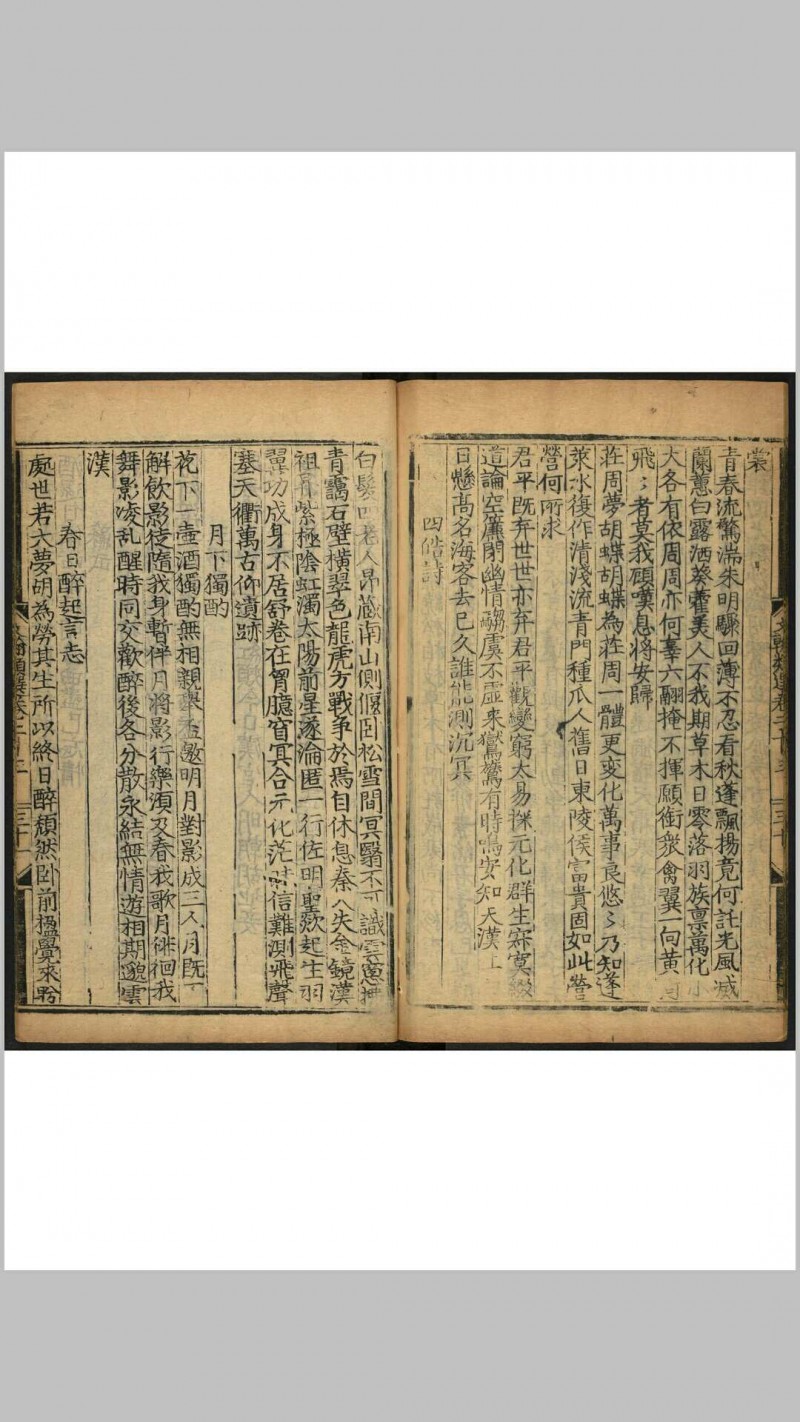 裳
青春流驚湍朱明驟回薄不忍看秋蓬飄揚竟何託光風滅
蘭蕙白露洒葵藿美人不我期草木日零落羽族禀萬化小
大各有依周周亦何辜六翮掩不揮願銜衆禽翼一向黄河
飛〻者莫我顧嘆息将安歸
莊周夢胡蝶胡蝶為莊周一體更变化萬事良悠〻乃知蓬
萊水復作清淺流青門種瓜人舊日東陵侯富貴固如此營
營何所求
君平既弃世世亦弃君平觀變窮太易探元化群生寂寞綴
道論空簾閉幽情騶虞不虚来鸑鷟有時鳴安知天漢上
日懸高名海客去已久誰能測沉冥
四皓詩
白髮四老人昂藏南山側偃卧松雪間冥翳不可識雲䆫拂
青靄石壁横翠色龍虎方戰争於焉自休息秦人失金鏡漢
祖升紫極陰虹濁太陽前星遂淪匿一行佐明聖欻起生羽
翼功成身不居舒卷在胷臆窅冥合元化茫昧信難測飛聲
塞天衢萬古仰遺跡
月下獨酌
花下一壺酒獨酌無相親舉盃邀明月對影成三人月既不
解飲影徒隨我身暫伴月将影行樂湏及春我歌月徘徊我
舞影凌乱醒時同交歡醉後各分散永結無情遊相期邈雲
漢
春日醉起言志
處世若大夢胡為勞其生所以終日醉頽然卧前楹覺來眄